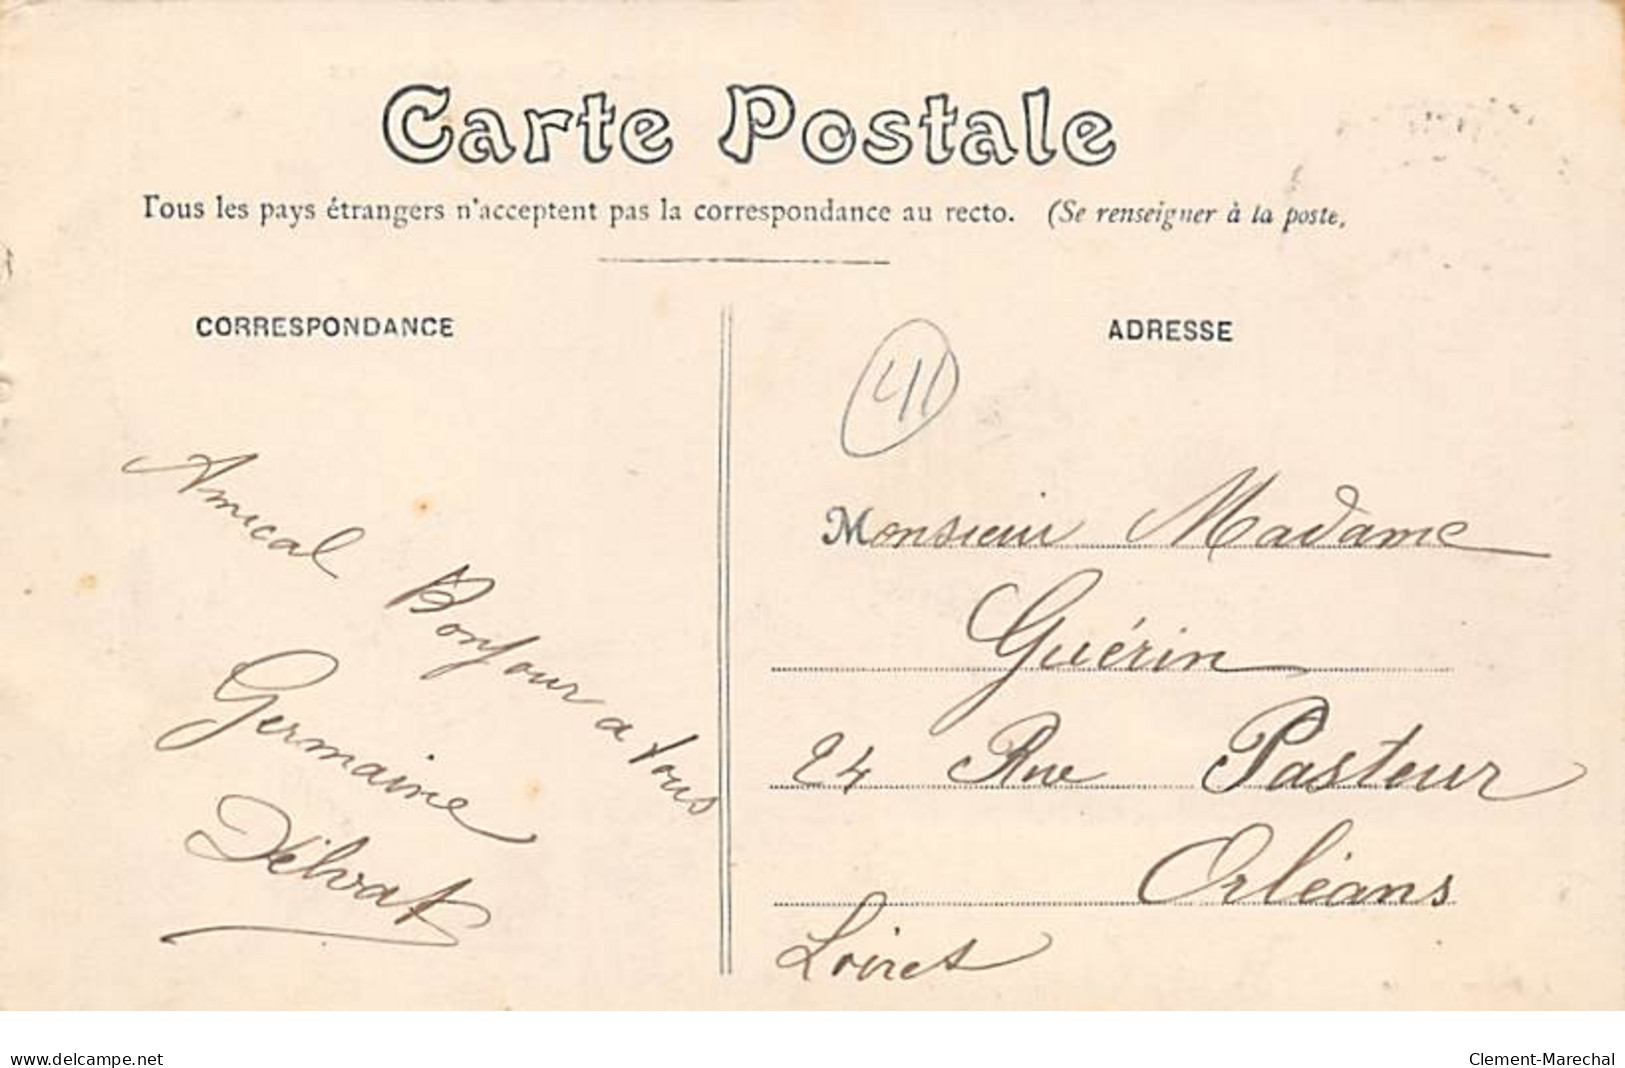 Carte Postale
Tous les pays étrangers n'acceptent pas la correspondance au recto. (Se renseigner à la poste.
CORRESPONDANCE
Amical Bonjour a tous
Germaine
Délvat
ADRESSE
41
Monsieur Madame
Guérin
24 Rue Pasteur
Orléans
Loiret
www.delcampe.net
Clement-Marechal